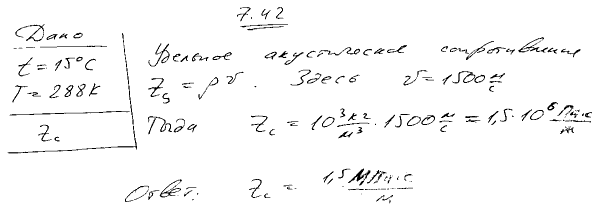 7.42
Дано
t = 15°C
T = 288K
Z_c
Удельное акустическое сопротивление
Z_s = ρ v. Здесь v = 1500 м/с
Тогда Z_c = 10³ кг/м³ · 1500 м/с = 1,5 · 10⁶ Па·с/м
Ответ: Z_c = 1,5 МПа·с/м